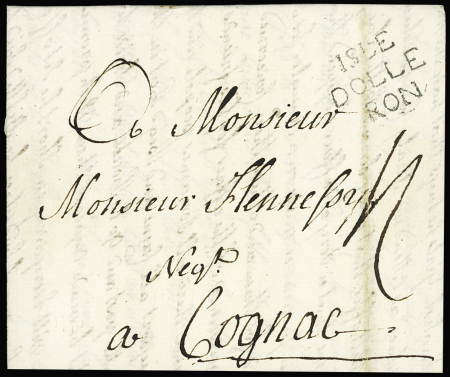 ISLE
DOLLE
RON
A Monsieur
Monsieur Hennessy
Negt.
a Cognac